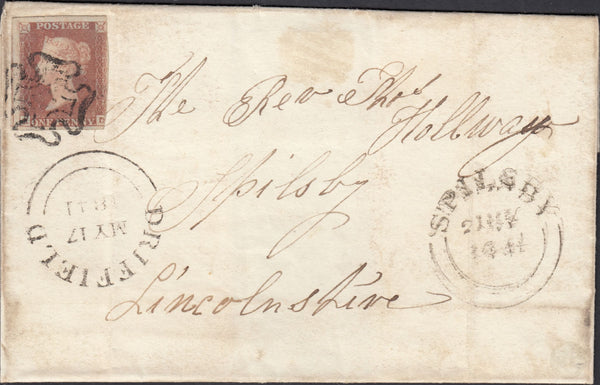 POSTAGE
ONE PENNY
The Rev Thos
Hollway
Spilsby
Lincolnshire
DRIFFIELD
MY 17
1841
SPILSBY
MY
1841